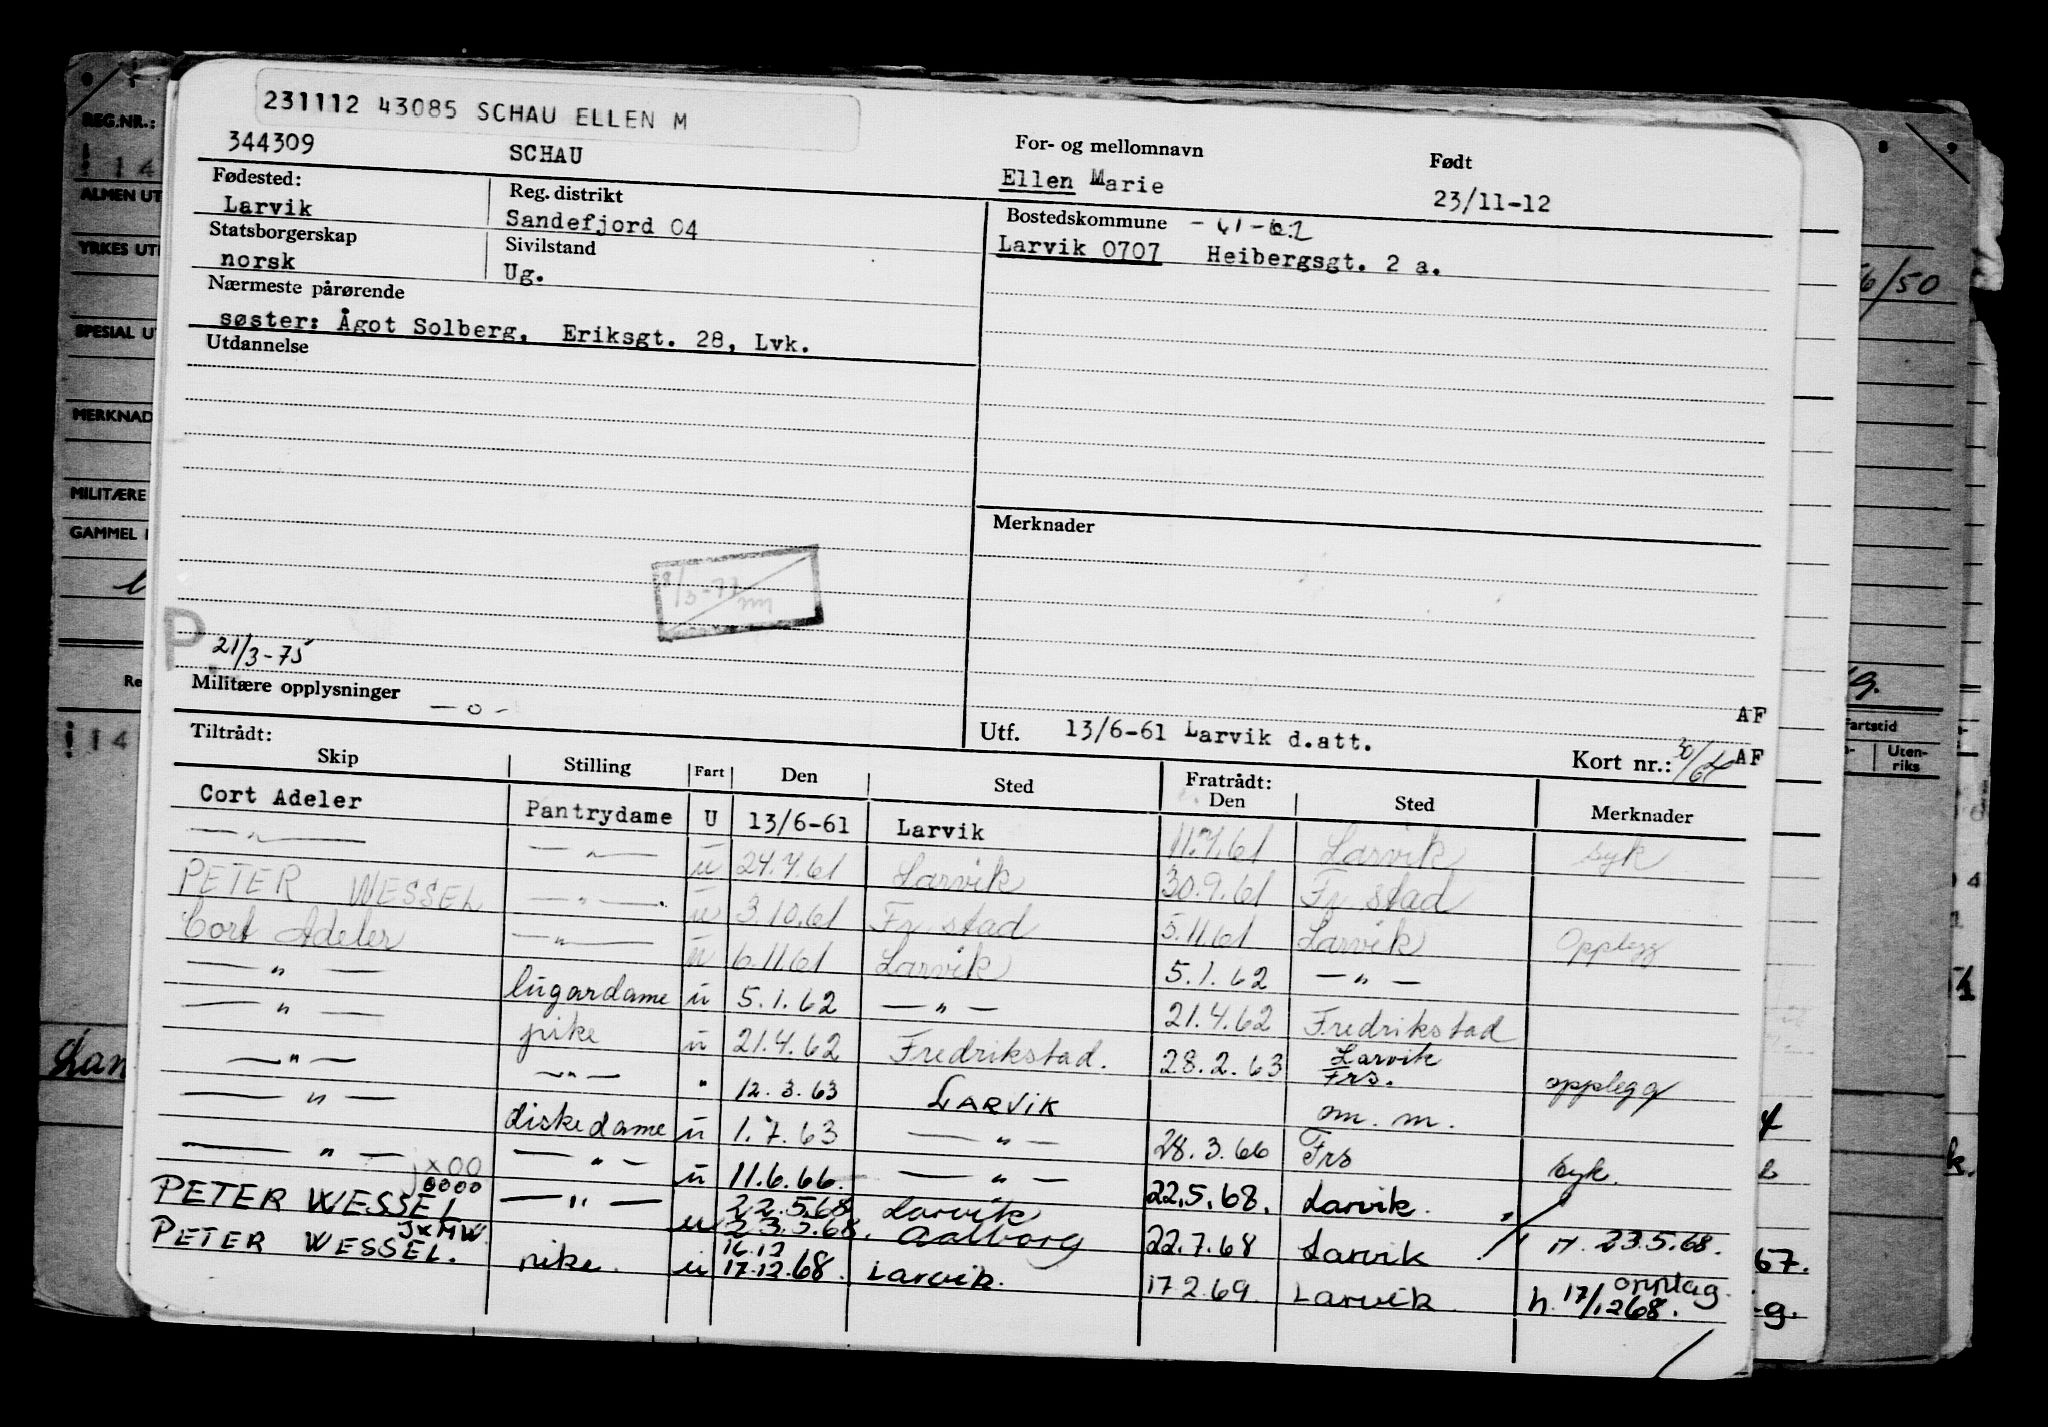 231112 43085 SCHAU ELLEN M
344309 SCHAU For- og mellomnavn Ellen Marie Født 23/11-12
Fødested: Larvik
Reg. distrikt Sandefjord 04
Bostedskommune
Larvik 0707 Heibergsgt. 2 a.
Statsborgerskap norsk
Sivilstand Ug.
Nærmeste pårørende
søster: Ågot Solberg, Eriksgt. 28, Lvk.
Utdannelse
Merknader
P.
21/3-75
Militære opplysninger — o -
Utf. 13/6-61 Larvik d.att. AF
Kort nr.: AF
Tiltrådt: Fratrådt:
Skip Stilling Fart Den Sted Den Sted Merknader
Cort Adeler Pantrydame U 13/6-61 Larvik 11.7.61 Larvik syk
— " — — " — ü 24.7.61 Larvik 30.9.61 Fr stad
PETER WESSEL — " — ü 3.10.61 Fr stad 5.11.61 Larvik Opplegg
Cort Adeler — " — ü 6.11.61 Larvik 5.1.62 — " —
— " — lugardame ü 5.1.62 — " — 21.4.62 Fredrikstad
— " — pike ü 21.4.62 Fredrikstad. 28.2.63 Larvik Frs. opplegg
— " — — " — " 12.3.63 LARVIK om. m.
— " — diskedame ü 1.7.63 — " — 28.3.66 Frs syk.
— " — — " — ü 11.6.66. — " — 22.5.68. Larvik.
PETER WESSEL — " — u 22.5.68 23.5.68. Larvik Aalborg 22.7.68 Larvik 23.5.68.
PETER WESSEL. JXMW. pike. u 16.12 17.12.68. Larvik. 17.2.69. Larvik opplag. h. 17/12 68.
REG.NR.:
ALMEN UT
YRKES UT
SPESIAL U
MERKNAD
MILITÆRE
GAMMEL
6/50
Fartstid
Uten-
riks
67.